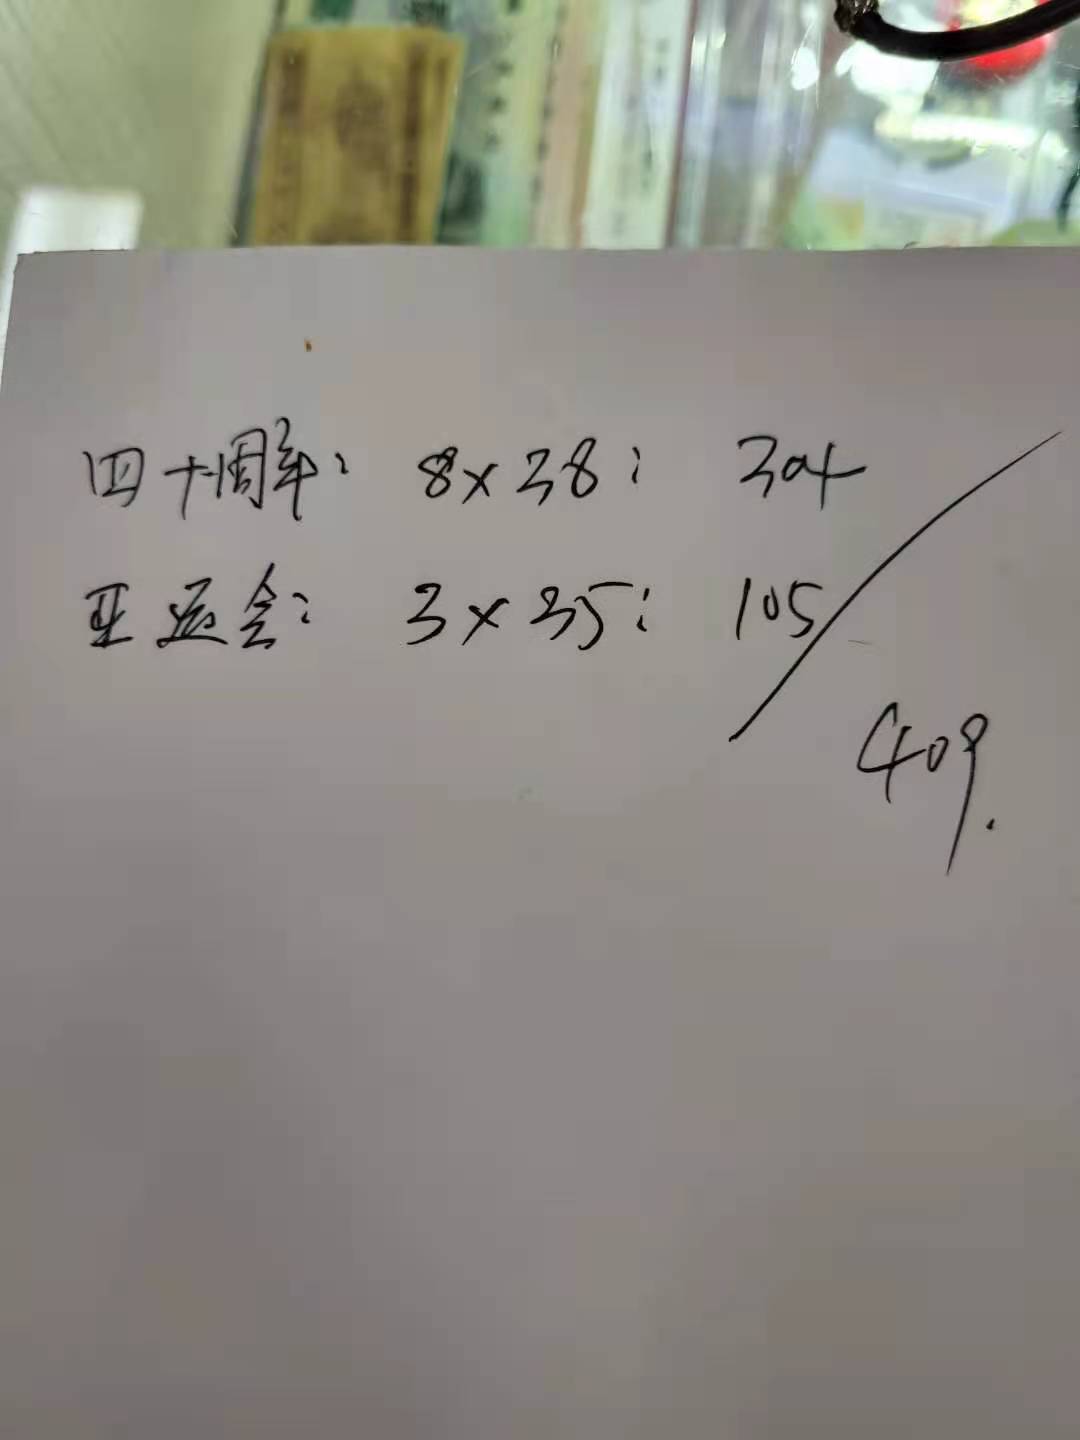 四十周年: 8×38: 304
亚运会: 3×35: 105
409.